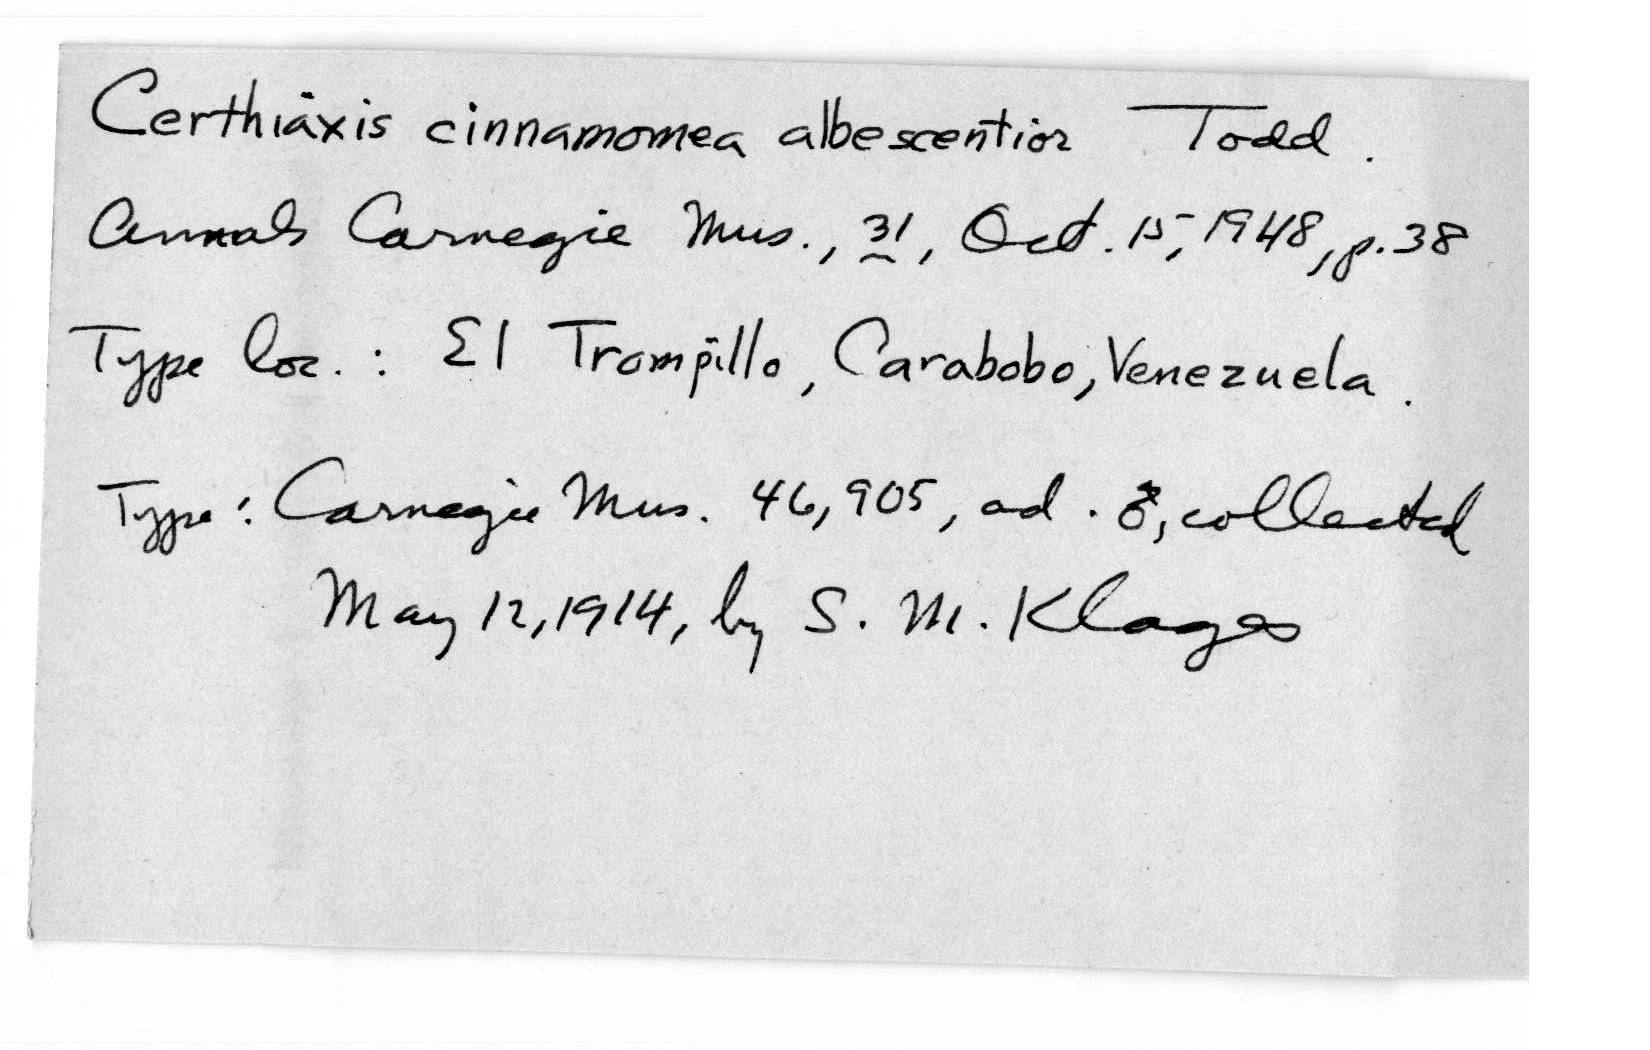 Certhiaxis cinnamomea albescentior Todd.
Annals Carnegie Mus., 31, Oct. 15, 1948, p. 38
Type loc.: El Trompillo, Carabobo, Venezuela.
Type: Carnegie Mus. 46,905, ad. ♂, collected
May 12, 1914, by S. M. Klages